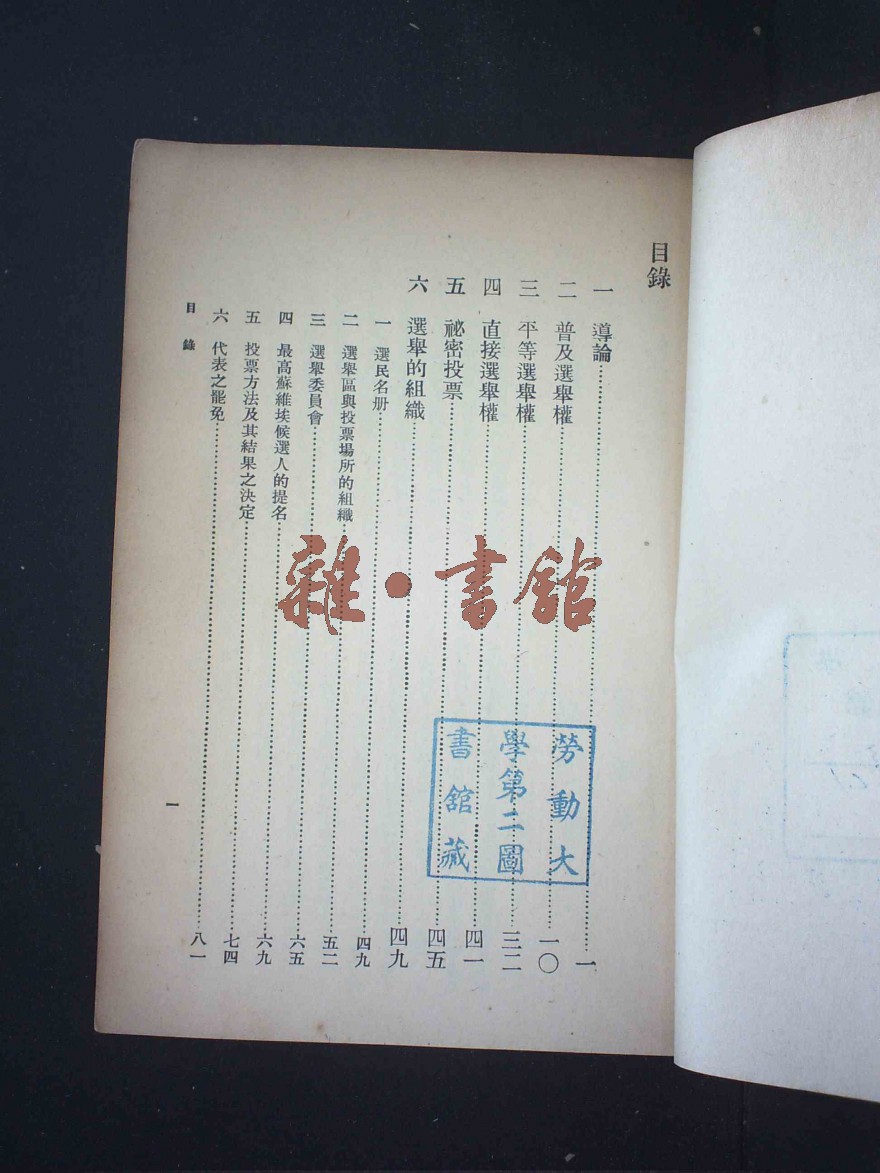 目錄
一 導論……一
二 普及選舉權……一〇
三 平等選舉權……三二
四 直接選舉權……四一
五 祕密投票……四五
六 選舉的組織……四九
一 選民名册……四九
二 選舉區與投票場所的組織……五二
三 選舉委員會……六五
四 最高蘇維埃候選人的提名……六九
五 投票方法及其結果之決定……七四
六 代表之罷免……八一
目錄
一
雜·書館
勞動大
學第二圖
書舘藏